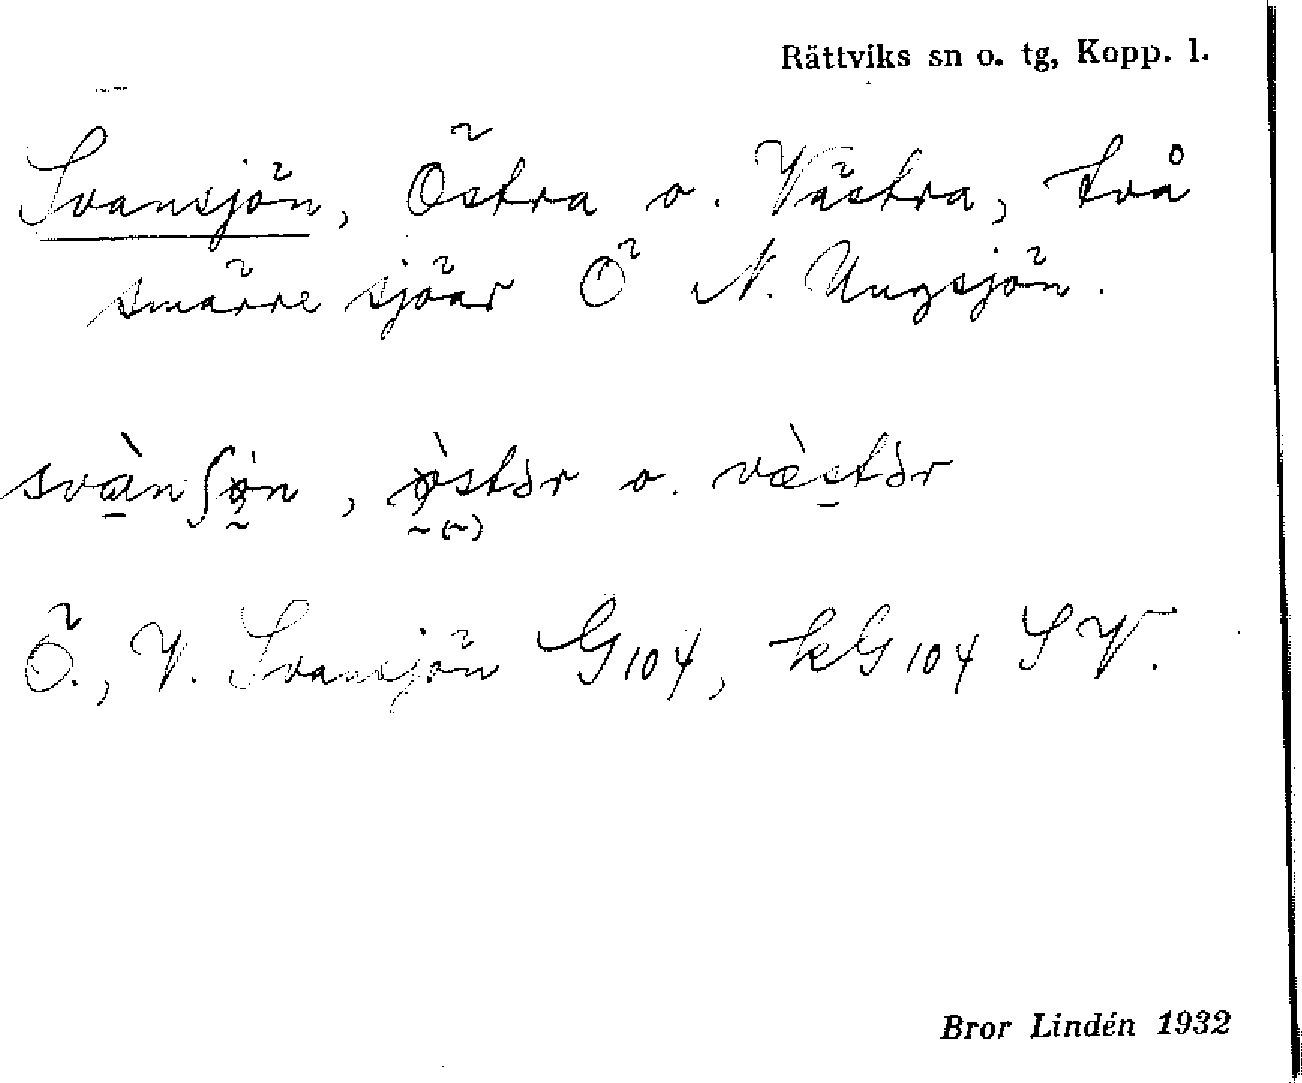 Rättviks sn o. tg, Kopp. l.
Svansjön, Östra o. Västra, två
smärre sjöar Ö N. Ungsjön.
svànʃø̀n, ø̀stər o. væ̀stər
Ö., V. Svansjön G104, kG104 SV.
Bror Lindén 1932